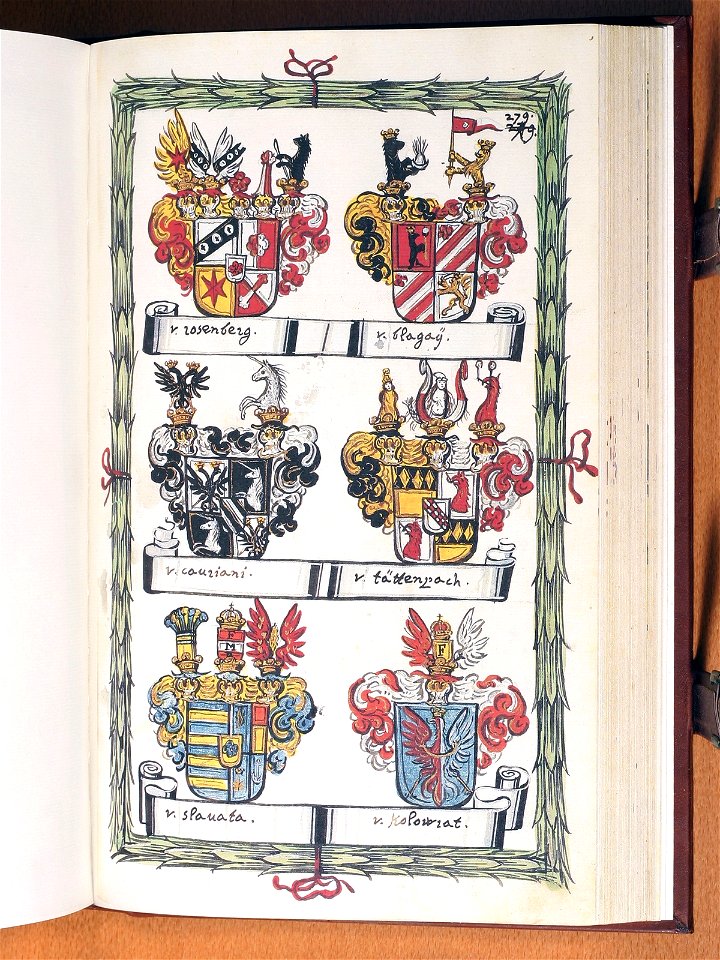 279.
v. rosenberg.
v. blagaÿ.
v. cauriani.
v. tättenpach.
F
M
R
F
v. slauata.
v. Kolowrat.